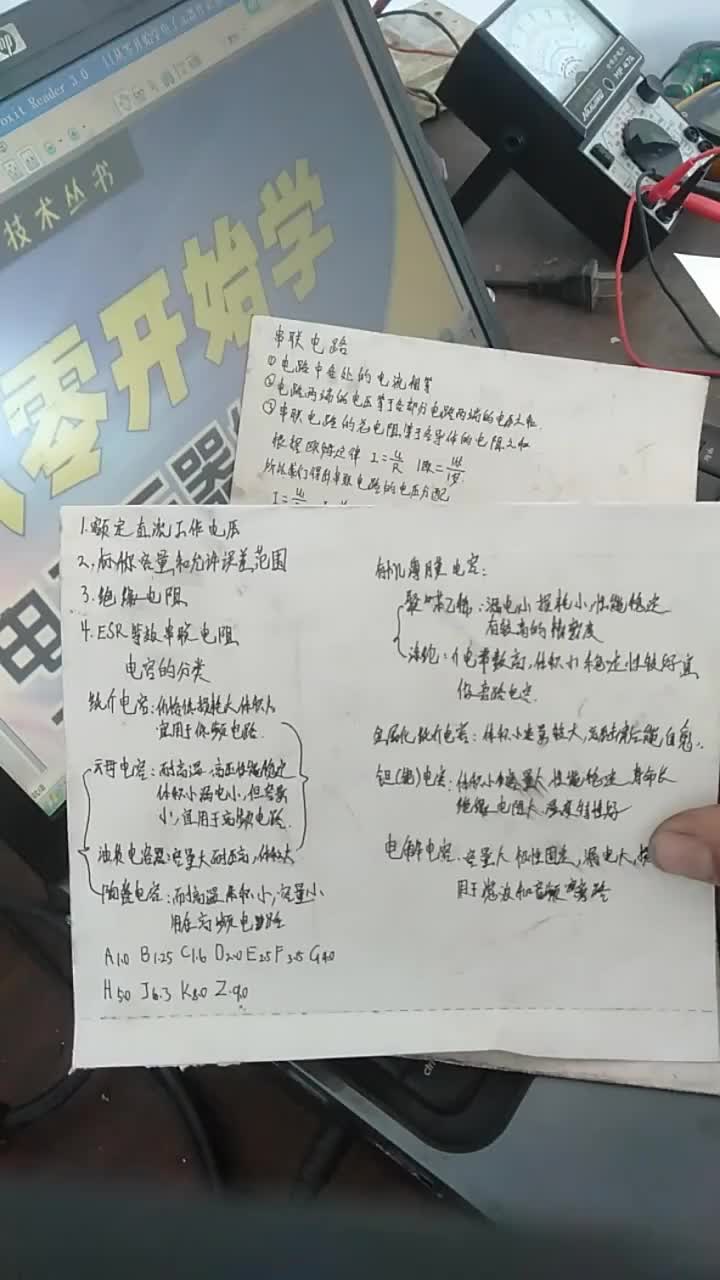 hp
Foxit Reader 3.0
技术丛书
从零开始学
电
MF 47A
串联电路
①电路中各处的电流相等
②电路两端的电压等于各部分电路两端的电压之和
③串联电路的总电阻等于各导体的电阻之和
根据欧姆定律 I=U/R
所以我们得出串联电路的电压分配
1.额定直流工作电压
2.标称容量和允许误差范围
3.绝缘电阻
4.ESR等效串联电阻
电容的分类
纸介电容:价格低损耗大体积大
宜用于低频电路.
云母电容:耐高温 高压性能稳定
体积小漏电小,但容量
小,宜用于高频电路.
油质电容器:容量大耐压高,体积大
陶瓷电容:耐高温 体积小,容量小
用在高频电路
A1.0 B1.25 C1.6 D2.0 E2.5 F3.15 G4.0
H5.0 J6.3 K8.0 Z9.0
有机薄膜电容:
聚苯乙烯:漏电小 损耗小,性能稳定
有较高的精密度
涤纶:介电常数高,体积小 稳定性较好宜
做旁路电容
金属化纸介电容:体积小 容量较大,击穿后能自愈
钽(铌)电容:体积小容量大 性能稳定 寿命长
绝缘电阻大 温度特性好
电解电容.容量大 极性固定,漏电大,损
用于滤波和音频旁路